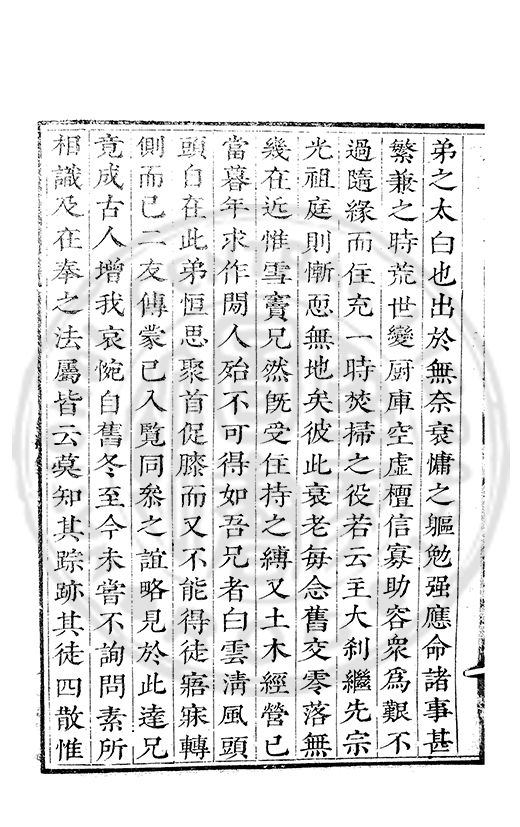 弟之太白也出於無奈衰慵之軀勉强應命諸事甚
繁兼之時荒世變厨庫空虛檀信寡助容衆爲艱不
過隨緣而住充一時焚掃之役若云主大刹繼先宗
光祖庭則慚恧無地矣彼此衰老每念舊交零落無
幾在近惟雪竇兄然旣受住持之縛又土木經營已
當暮年求作閒人殆不可得如吾兄者白雲淸風頭
頭自在此弟恒思聚首促膝而又不能得徒寤寐轉
側而已二友傳蒙已入覽同叅之誼略見於此達兄
竟成古人增我哀惋自舊冬至今未嘗不詢問素所
相識及在奉之法屬皆云莫知其踪跡其徒四散惟